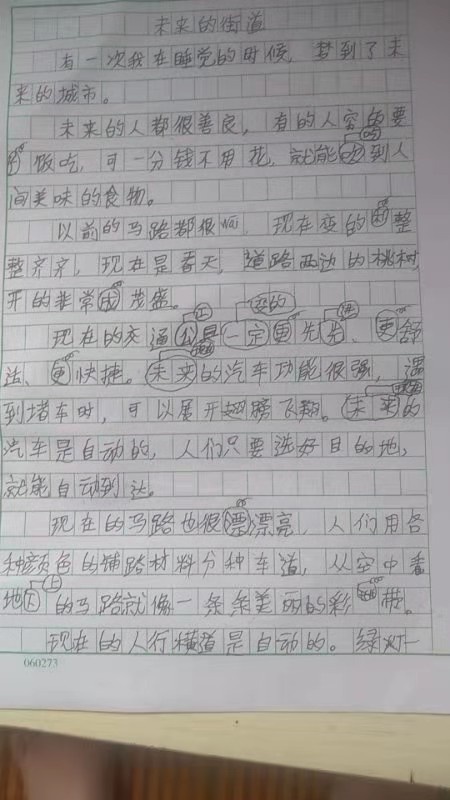 未来的街道
有一次我在睡觉的时候，梦到了未
来的城市。
未来的人都很善良，有的人穷的要
饭吃，可一分钱不用花，就能吃到人
间美味的食物。
以前的马路都很 现在变的 整
整齐齐，现在是春天，道路两边的桃树
开的非常 茂盛。
变的
现在的交通 一定更先 、更舒
达、更快捷。未来的汽车功能很强，遇
到堵车时，可以展开翅膀飞翔。未来的
汽车是自动的，人们只要选好目的地，
就能自动到达。
现在的马路也很漂漂亮，人们用各
种颜色的铺路材料分种车道，从空中看
地 上 的马路就像一条条美丽的彩 带。
现在的人行横道是自动的。绿灯一
060273